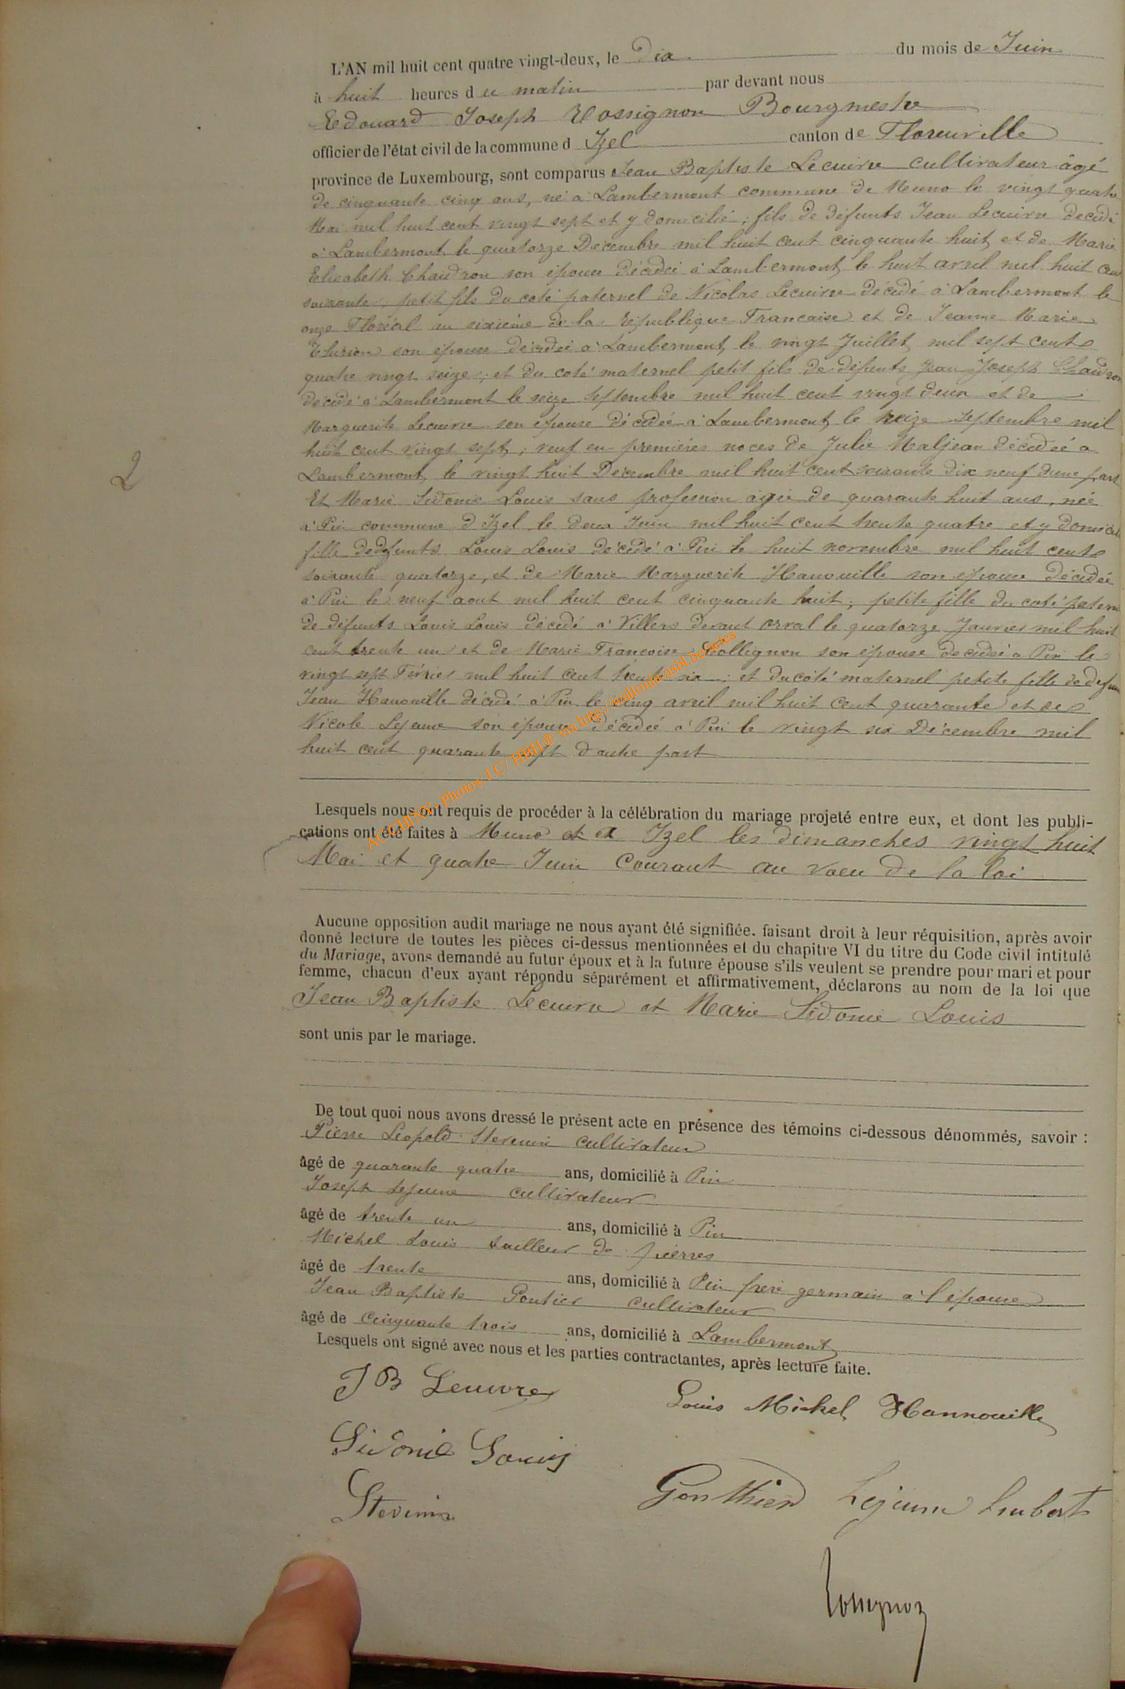 L'AN mil huit cent quatre vingt-deux, le dix du mois de Juin
à huit heures du matin par devant nous
Edouard Joseph Rossignon Bourgmestre
officier de l'état civil de la commune d Izel canton de Florenville
province de Luxembourg, sont comparus Jean Baptiste Lecuivre cultivateur âgé
de cinquante cinq ans, né à Lambermont commune de Muno le vingt quatre
Mai mil huit cent vingt sept et y domicilié; fils de défunts Jean Lecuivre décédé
à Lambermont le quatorze Décembre mil huit cent cinquante huit, et de Marie
Elisabeth Chaudron son épouse décédée à Lambermont, le huit avril mil huit cent
soixante; petit fils du coté paternel de Nicolas Lecuivre décédé à Lambermont le
onze Floréal an sixième de la République Francaise et de Jeanne Marie
Thirion son épouse décédée à Lambermont, le vingt Juillet mil sept cent
quatre vingt seize; et du coté maternel petit fils de défunts Jean Joseph Chaudron
décédé à Lambermont le seize septembre mil huit cent vingt deux et de
Marguerite Lecuivre son épouse décédée à Lambermont, le septembre mil
huit cent vingt sept; veuf en premières noces de Julie Maljean décédée à
Lambermont, le vingt huit Décembre mil huit cent soixante dix neuf d'une part
Et Marie Sidonie Louis sans profession agée de quarante huit ans, née
à Pin commune d'Izel le deux Juin mil huit cent trente quatre et y domiciliée
fille de défunts Louis Louis décédé à Pin le huit novembre mil huit cent
soixante quatorze, et de Marie Marguerite Hanouille son épouse décédée
à Pin le neuf aout mil huit cent cinquante huit; petite fille du coté paternel
de défunts Louis Louis décédé à Villers devant Orval le quatorze Janvier mil huit
cent trente un et de Marie Francoise Collignon son épouse décédée à Pin le
vingt sept Février mil huit cent trente six; et du côté maternel petite fille de défunts
Jean Hanouille décédé à Pin le cinq avril mil huit cent quarante et de
Nicole Lejeune son épouse décédée à Pin le vingt six Décembre mil
huit cent quarante sept d'autre part
Lesquels nous ont requis de procéder à la célébration du mariage projeté entre eux, et dont les publi-
cations ont été faites à Muno et à Izel les dimanches vingt huit
Mai et quatre Juin courant au voeu de la loi
Aucune opposition audit mariage ne nous ayant été signifiée, faisant droit à leur réquisition, après avoir
donné lecture de toutes les pièces ci-dessus mentionnées et du chapitre VI du titre du Code civil intitulé
du Mariage, avons demandé au futur époux et à la future épouse s'ils veulent se prendre pour mari et pour
femme, chacun d'eux ayant répondu séparément et affirmativement, déclarons au nom de la loi que
Jean Baptiste Lecuivre et Marie Sidonie Louis
sont unis par le mariage.
De tout quoi nous avons dressé le présent acte en présence des témoins ci-dessous dénommés, savoir :
Pierre Léopold Stevenin cultivateur
âgé de quarante quatre ans, domicilié à Pin
Joseph Lejeune cultivateur
âgé de trente un ans, domicilié à Pin
Michel Louis tailleur de pierres
âgé de trente ans, domicilié à Pin frère germain à l'épouse
Jean Baptiste Pontier cultivateur
âgé de cinquante trois ans, domicilié à Lambermont
Lesquels ont signé avec nous et les parties contractantes, après lecture faite.
J B Lecuivre
Louis Michel Hannouille
Sidonie Louis
Gonthier Lejeune Hubert
Stevenin
Rossignon
2